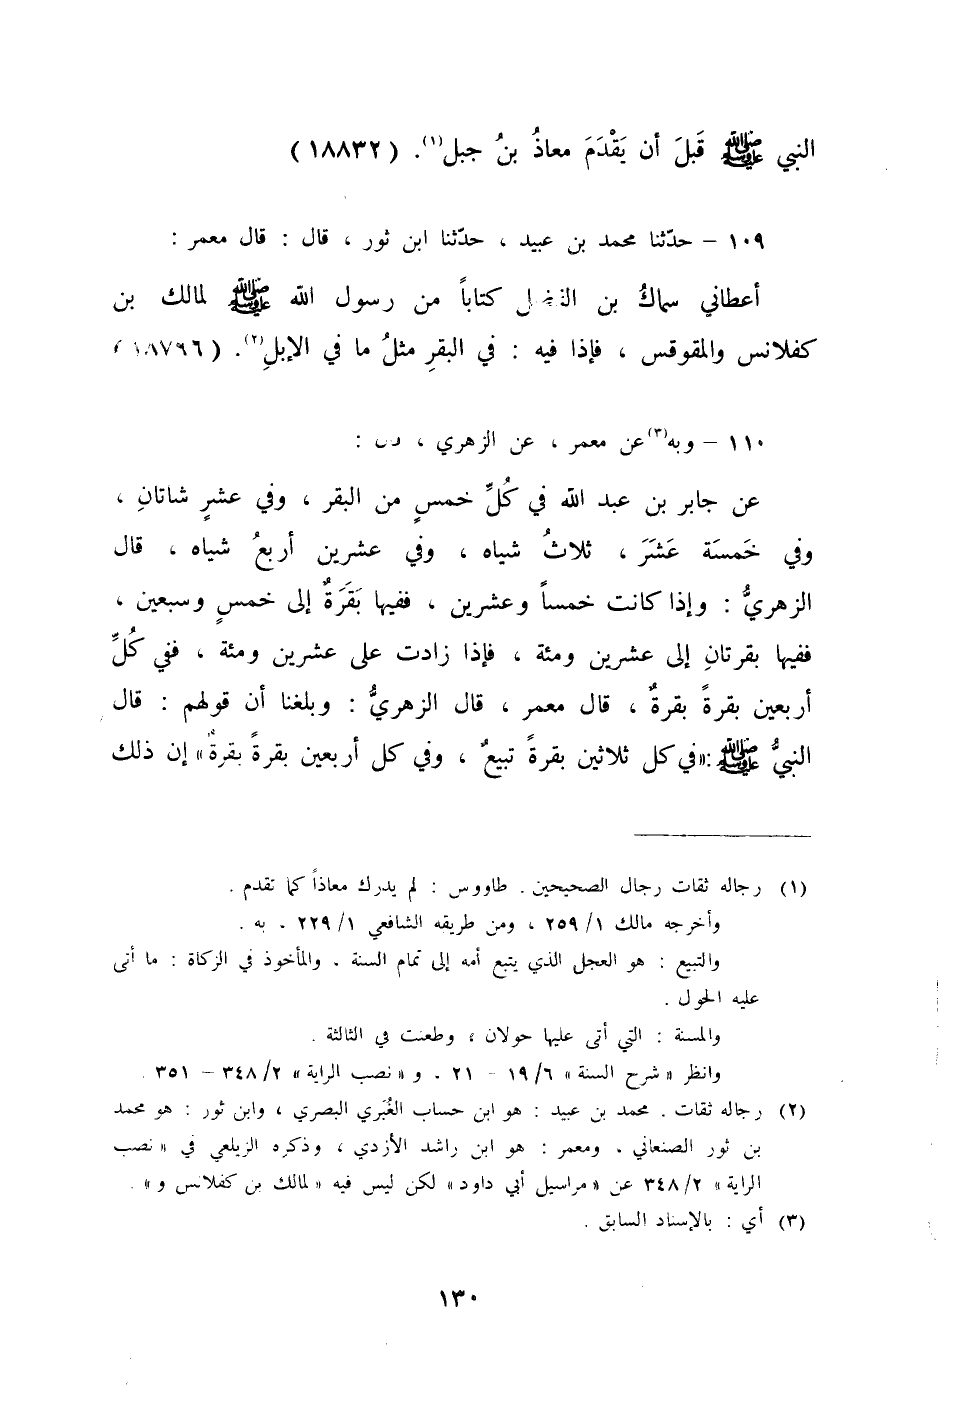 النبي ﷺ قَبلَ أن يَقْدَمَ معاذُ بنُ جبل(١). (١٨٨٣٢)
١٠٩ – حدّثنا محمد بن عبيد ، حدّثنا ابن ثور ، قال : قال معمر :
أعطاني سماكُ بن كتاباً من رسول الله ﷺ لمالك بن
كفلانس والمقوقس ، فإذا فيه : في البقرِ مثلُ ما في الإبلِ(٢). (١٨٧٩٦)
١١٠ – وبه(٣) عن معمر ، عن الزهري ، :
عن جابر بن عبد الله في كُلِّ خمسٍ من البقر ، وفي عشرٍ شاتانِ ،
وفي خَمسَة عَشَرَ ، ثلاثُ شياه ، وفي عشرين أربعُ شياه ، قال
الزهريُّ : وإذا كانت خمساً وعشرين ، ففيها بَقَرَةٌ إلى خمسٍ وسبعين ،
ففيها بقرتانِ إلى عشرين ومئة ، فإذا زادت على عشرين ومئة ، ففي كُلِّ
أربعين بقرةً بقرةٌ ، قال معمر ، قال الزهريُّ : وبلغنا أن قولهم : قال
النبيُّ ﷺ :«في كل ثلاثين بقرةً تبيعٌ ، وفي كل أربعين بقرةً بقرةٌ» إن ذلك
(١) رجاله ثقات رجال الصحيحين . طاووس : لم يدرك معاذاً كما تقدم .
وأخرجه مالك ١/ ٢٥٩ ، ومن طريقه الشافعي ١/ ٢٢٩ . به .
والتبيع : هو العجل الذي يتبع أمه إلى تمام السنة . والمأخوذ في الزكاة : ما أتى
عليه الحول .
والمسنة : التي أتى عليها حولان ، وطعنت في الثالثة .
وانظر « شرح السنة » ٦/ ١٩ – ٢١ . و « نصب الراية » ٢/ ٣٤٨ – ٣٥١ .
(٢) رجاله ثقات . محمد بن عبيد : هو ابن حساب الغُبَري البصري ، وابن ثور : هو محمد
بن ثور الصنعاني . ومعمر : هو ابن راشد الأزدي ، وذكره الزيلعي في « نصب
الراية » ٢/ ٣٤٨ عن « مراسيل أبي داود » لكن ليس فيه « لمالك بن كفلانس و » .
(٣) أي : بالإسناد السابق .
١٣٠